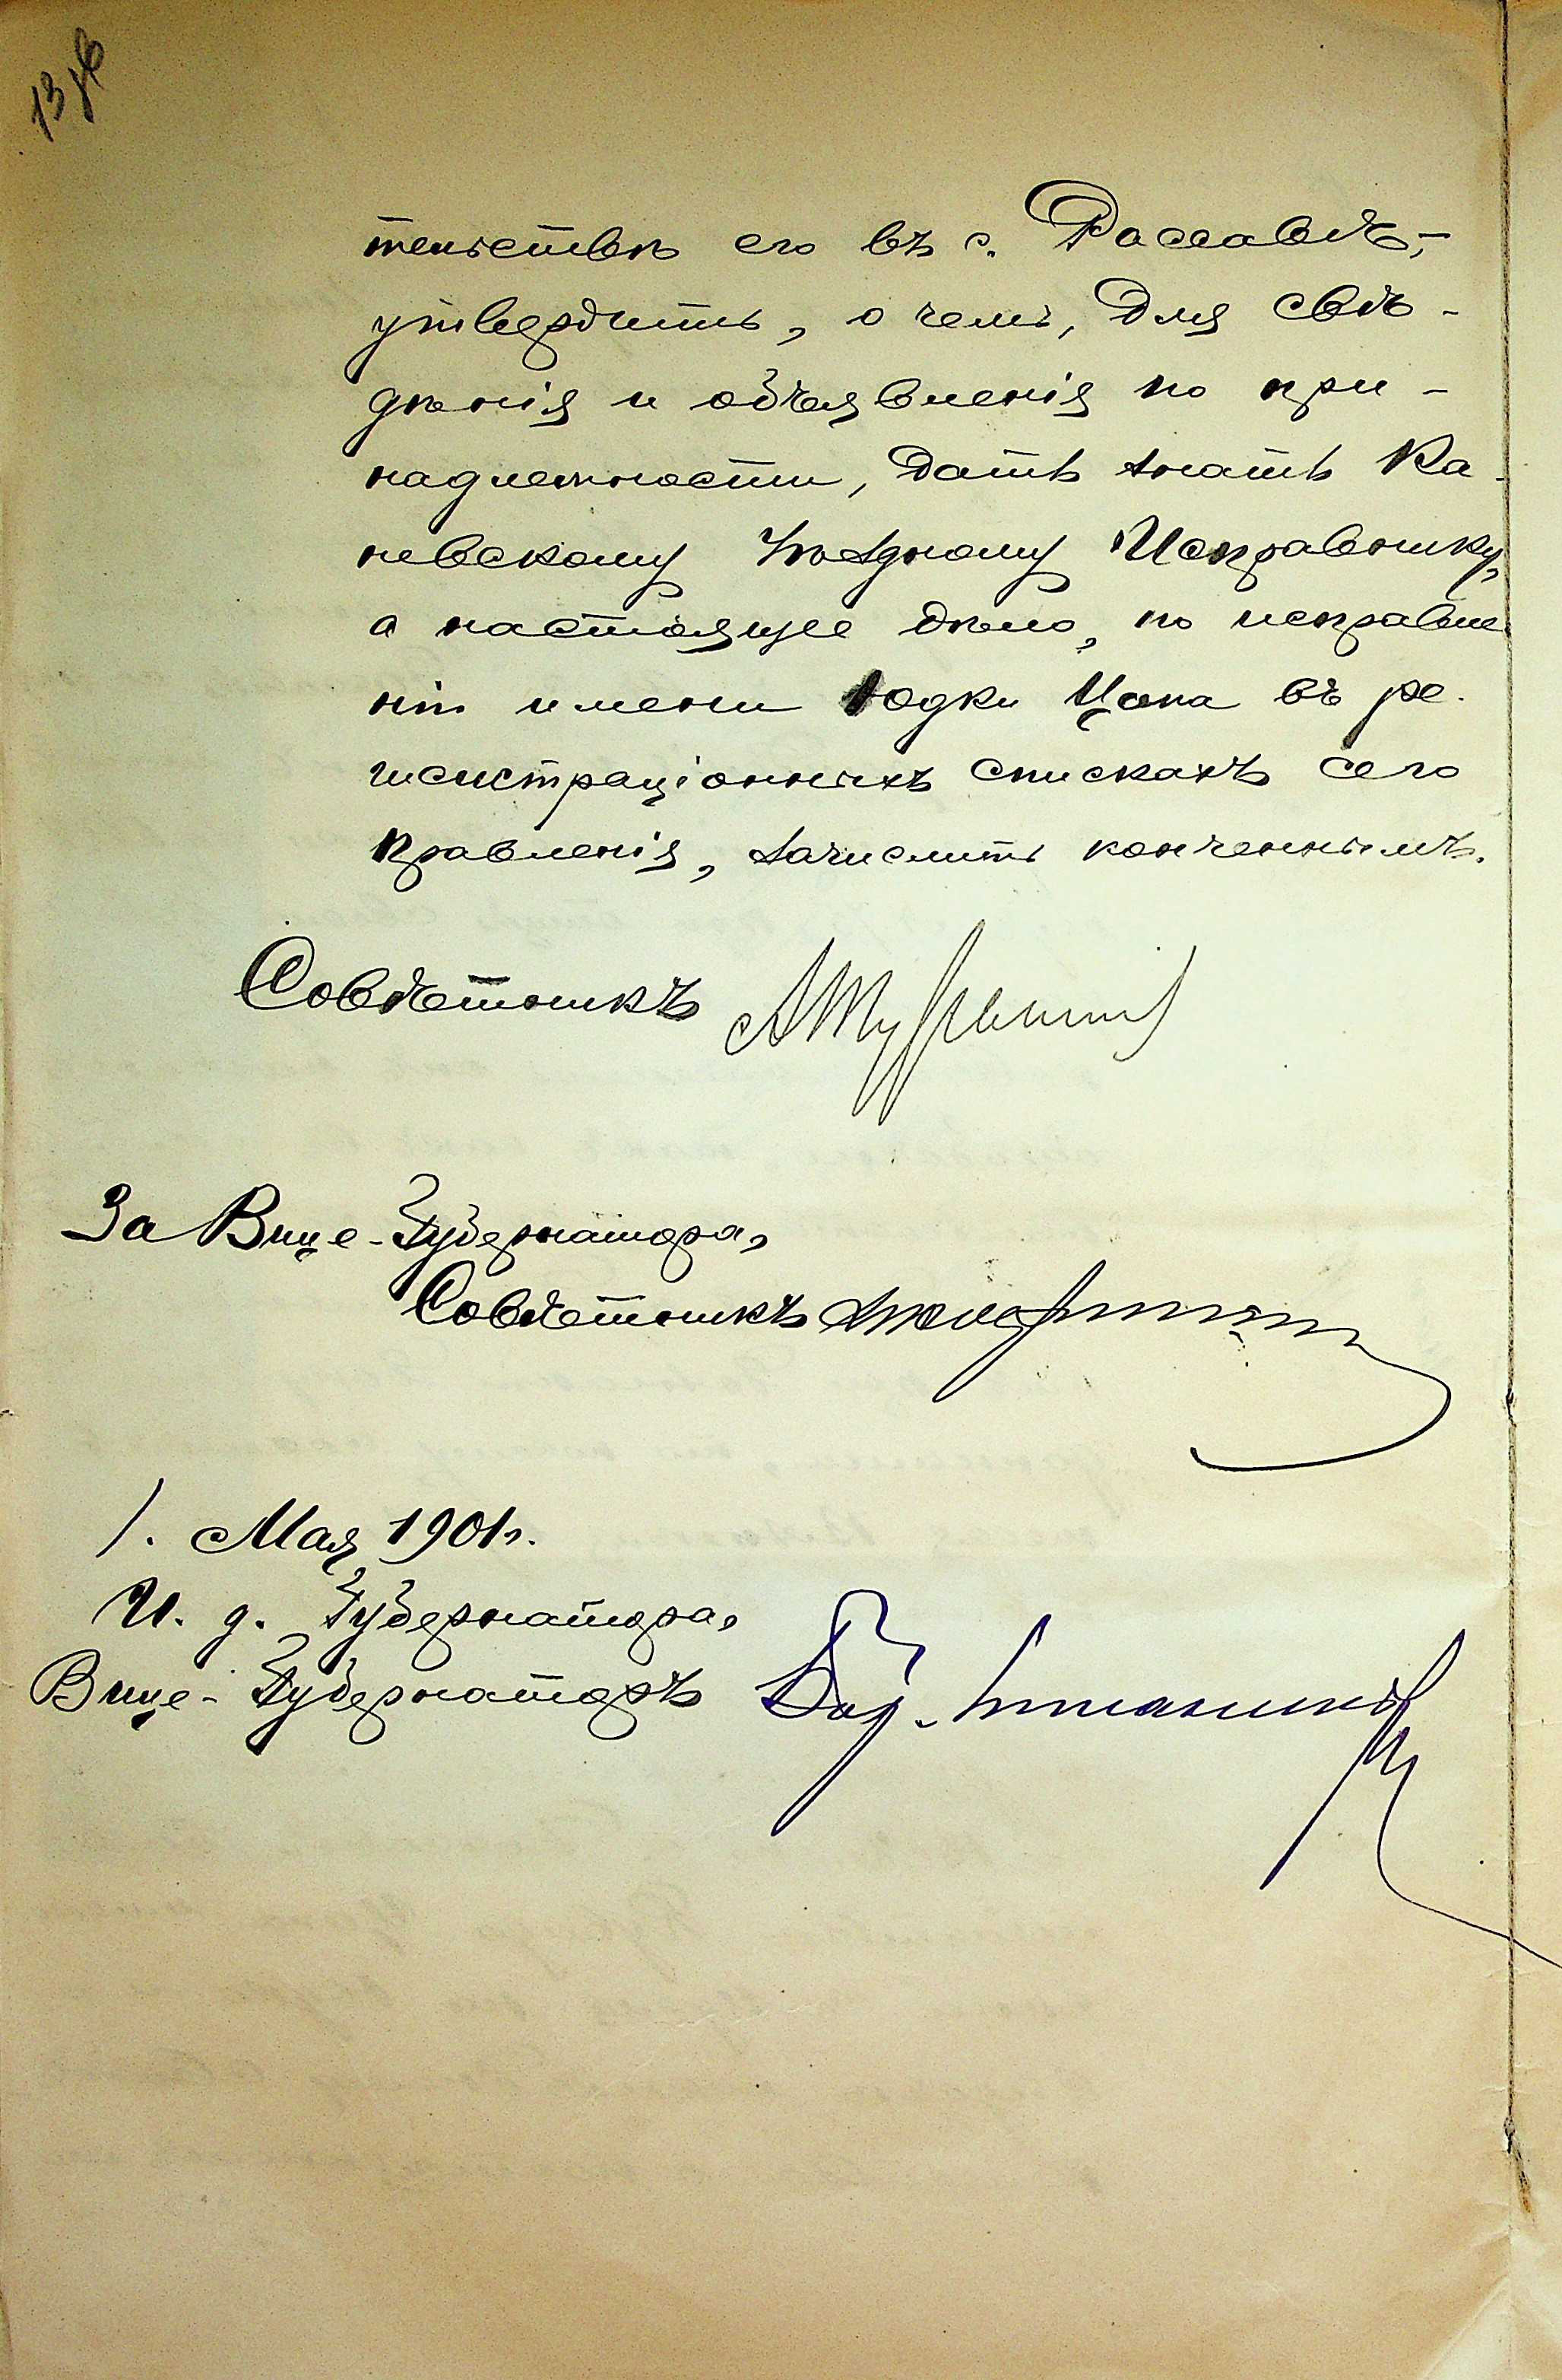 13 об
тельствѣ его въ с. Россавѣ,-
утвердить, о чемъ, для свѣ-
дѣнія и объявленія по при-
надлежности, дать знать Ка-
невскому Уѣздному Исправнику,
а настоящее дѣло, по исправле
ніи имени Іодки Цапа въ ре-
гистраціонныхъ спискахъ сего
Правленія, зачислить конченнымъ.
Совѣтникъ
За Вице-Губернатора,
Совѣтникъ
1. Мая 1901 г.
И. д. Губернатора,
Вице-Губернаторъ